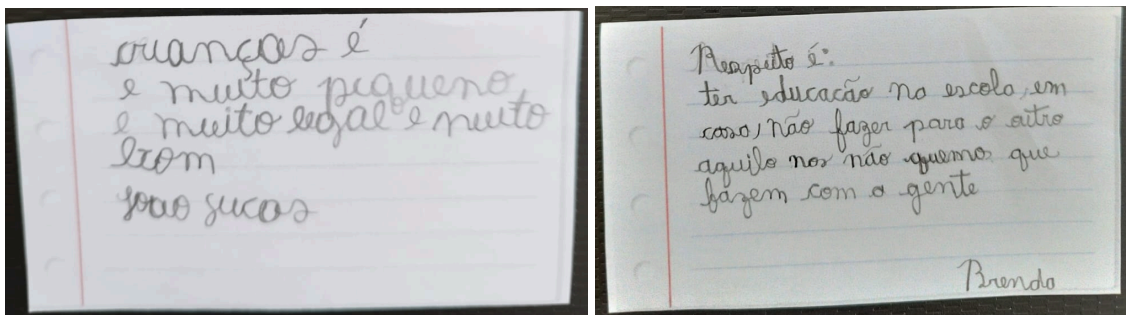 crianças é
e muito piqueno
e muito legal e muito
bom
João Lucas
Respeito é:
ter educação na escola, em
casa, não fazer para o outro
aquilo nos não quemo que
fazem com a gente
Brenda